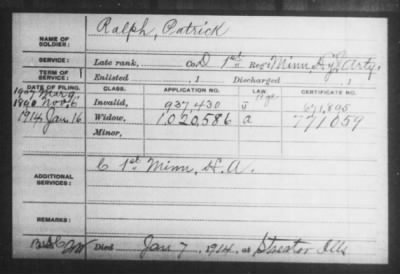 NAME OF SOLDIER: Ralph, Patrick
SERVICE: Late rank, Co. D 1st Reg't Minn. H'y Arty.
TERM OF SERVICE: Enlisted , 1 Discharged , 1
DATE OF FILING. CLASS. APPLICATION NO. LAW. CERTIFICATE NO.
1890 Nov 6 Invalid, 937,430 671,895
1914 Jan. 16 Widow, 1,020,586 a 771059
Minor,
ADDITIONAL SERVICES: C 1st Minn. H. A.
REMARKS:
Died Jan 7, 1914, at Streator Ills